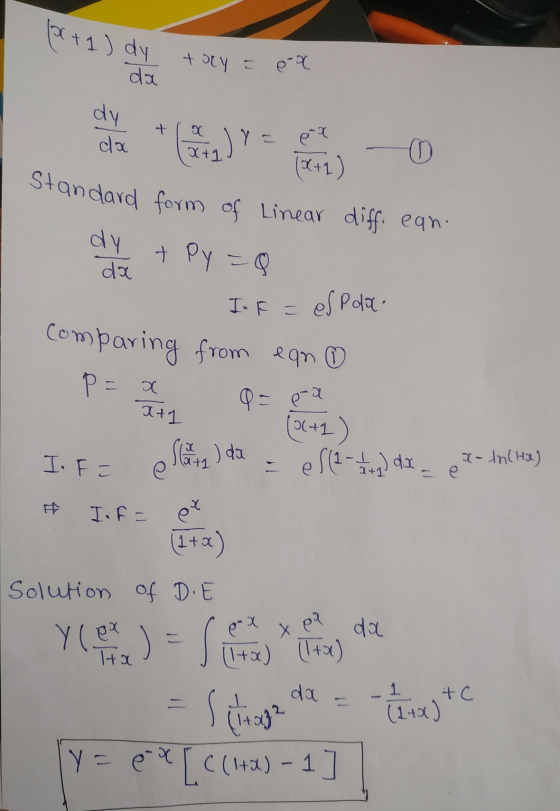 (x+1) dy/dx + xy = e^-x
dy/dx + (x/x+1) y = e^-x/(x+1) —①
Standard form of Linear diff. eqn.
dy/dx + Py = Q
I.F = e∫Pdx.
Comparing from eqn ①
P = x/x+1 Q = e^-x/(x+1)
I.F = e^∫(x/x+1) dx = e^∫(1 - 1/x+1) dx = e^x - ln(1+x)
⇒ I.F = e^x/(1+x)
Solution of D.E
Y(e^x/1+x) = ∫ e^-x/(1+x) × e^x/(1+x) dx
= ∫ 1/(1+x)^2 dx = - 1/(1+x) + C
Y = e^-x [C(1+x) - 1]